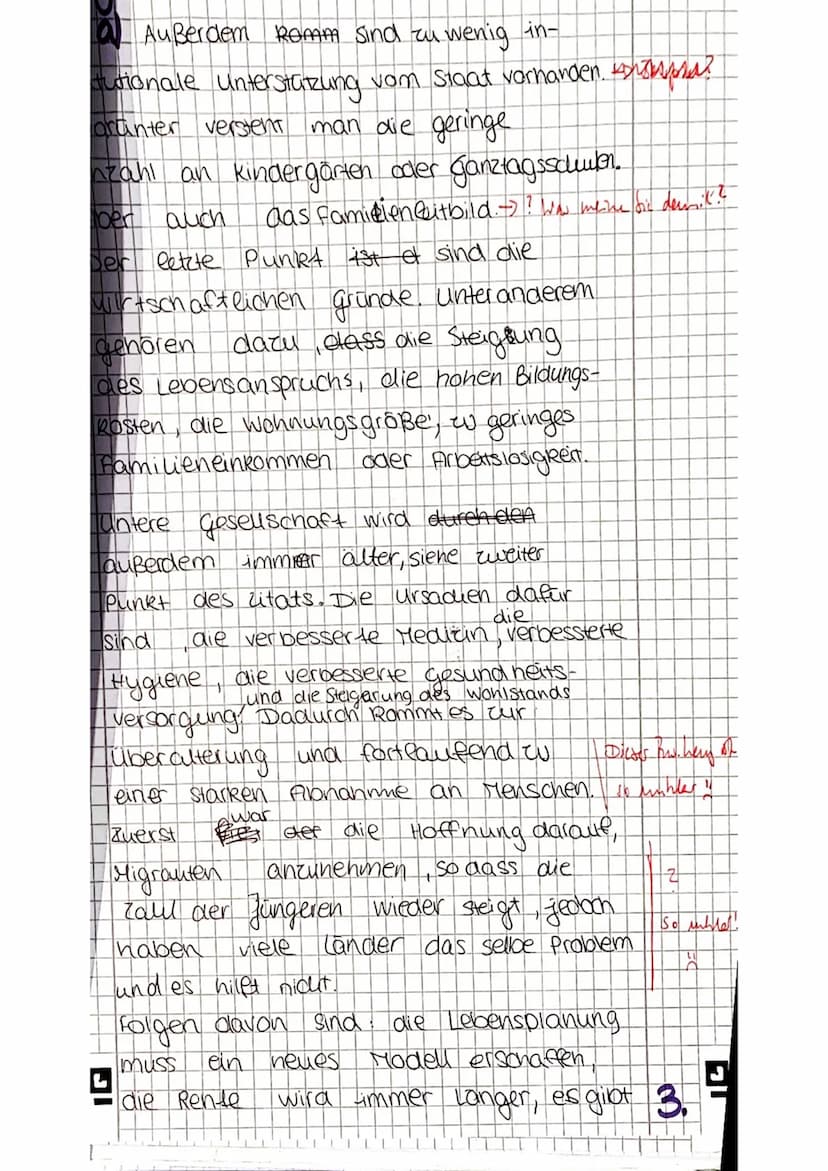 Außerdem komm sind zu wenig in-
tutionale Unterstützung vom Staat vorhanden.
arünter versteht man die geringe
nzahl an Kindergärten oder Ganztagsschulen.
ber auch das Familienleitbild. →? Was meinen Sie damit?
Der letzte Punkt ist et sind die
wirtschaftlichen Gründe. Unter anderem
gehören dazu, dass die Steigung
des Lebensanspruchs, die hohen Bildungs-
kosten, die Wohnungsgröße, zu geringes
Familieneinkommen oder Arbeitslosigkeit.
Untere Gesellschaft wird durch den
außerdem immer älter, siehe zweiter
Punkt des Zitats. Die Ursachen dafür
die
sind, die verbesserte Medizin, verbesserte
Hygiene, die verbesserte Gesundheits-
und die Steigerung des Wohlstands
versorgung. Dadurch kommt es zur
Überalterung und fortlaufend zu Dieser
einer starken Abnahme an Menschen. so unklar!!
war
Zuerst der die Hoffnung darauf,
Migranten anzunehmen, so dass die ?
Zahl der Jüngeren wieder steigt, jedoch so unklar!
haben viele Länder das selbe Problem
und es hilft nicht.
Folgen davon sind: die Lebensplanung
muss ein neues Modell erschaffen,
die Rente wird immer länger, es gibt 3.